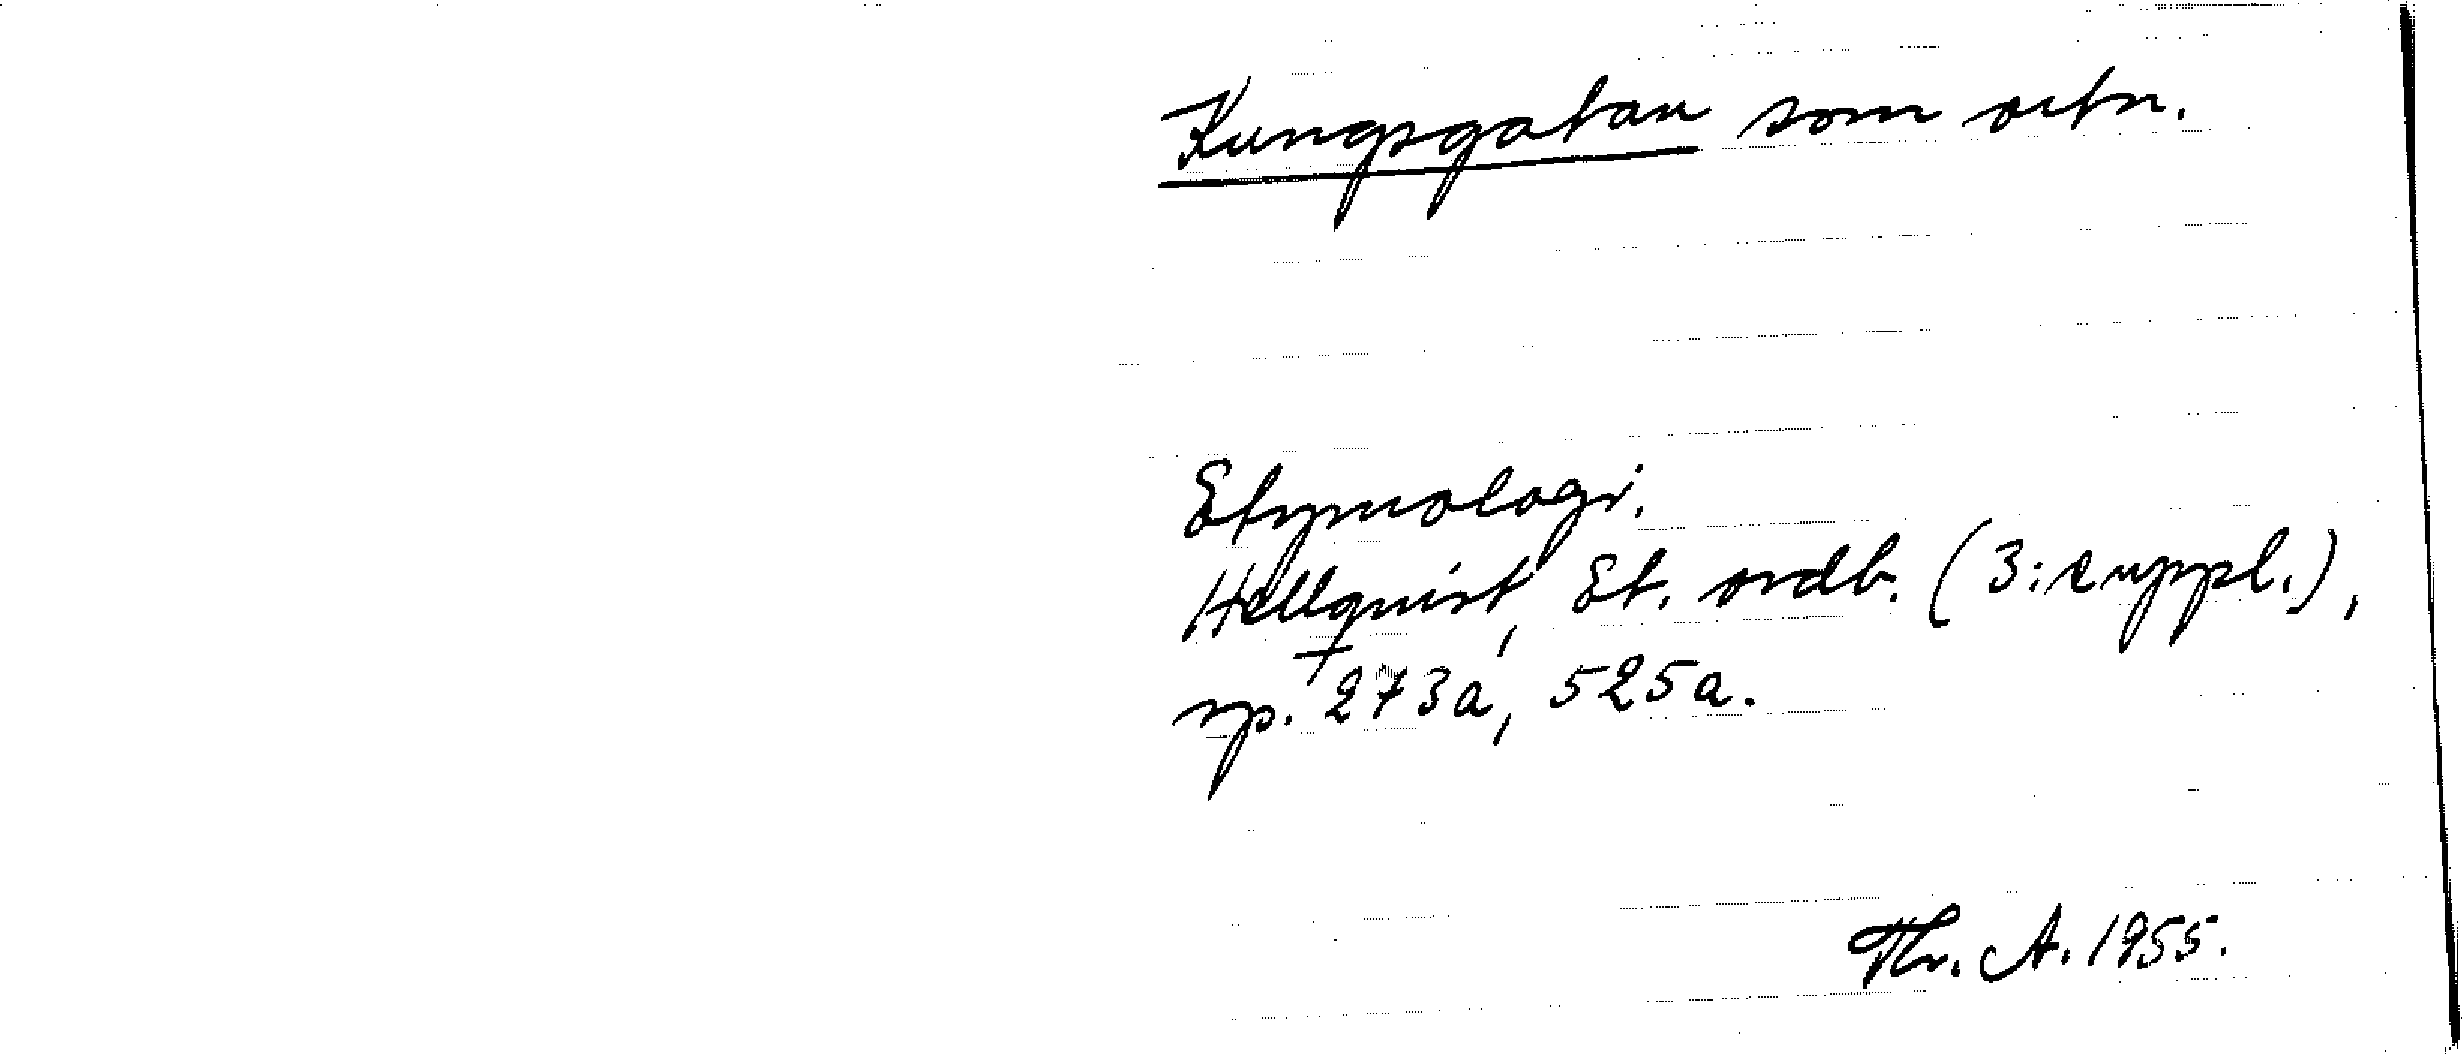 Kungsgatan som ortn.
Etymologi.
Hellquist, Et. ordb. (3:e uppl.),
sp. 273a, 525a.
Thr. A. 1955.